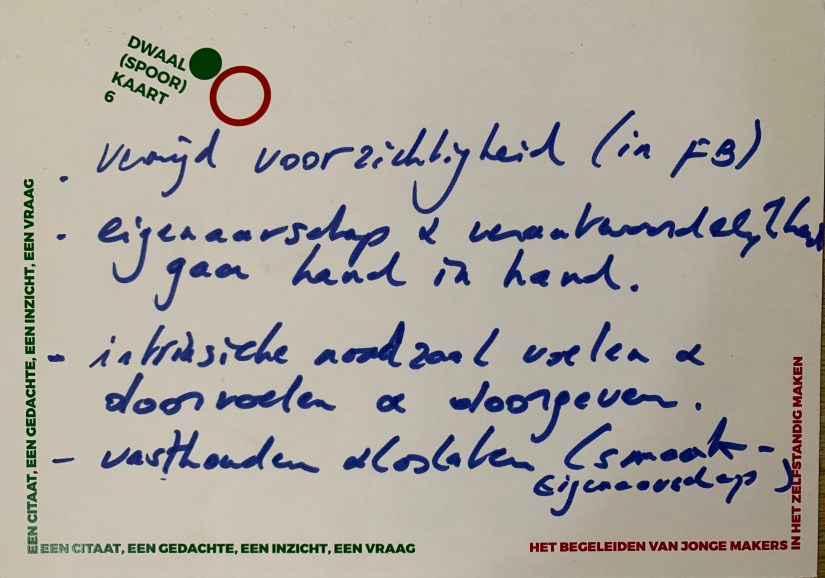 DWAAL
(SPOOR)
KAART
6
. vermijd voorzichtigheid (in FB)
. eigenaarschap & verantwoordelijkheid
gaan hand in hand.
- intrinsieke noodzaak voelen &
doorvoelen & doorgeven.
- vasthouden & loslaten (smaak-
eigenaarschap)
EEN CITAAT, EEN GEDACHTE, EEN INZICHT, EEN VRAAG
EEN CITAAT, EEN GEDACHTE, EEN INZICHT, EEN VRAAG
HET BEGELEIDEN VAN JONGE MAKERS
IN HET ZELFSTANDIG MAKEN